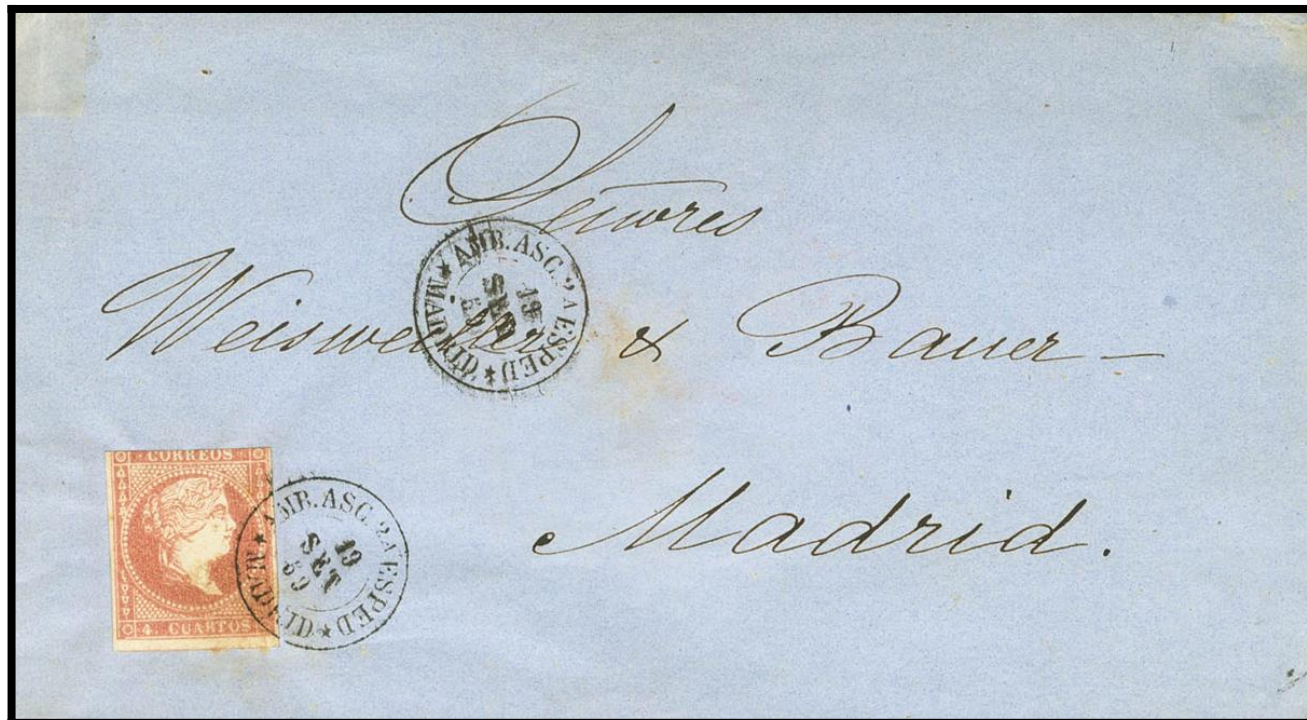 Señores
Weisweiller & Bauer –
Madrid.
AMB. ASC. 2A ESPED ★ MADRID ★
19
SET
59
CORREOS
4. CUARTOS
AMB. ASC. 2A ESPED ★ MADRID ★
19
SET
59